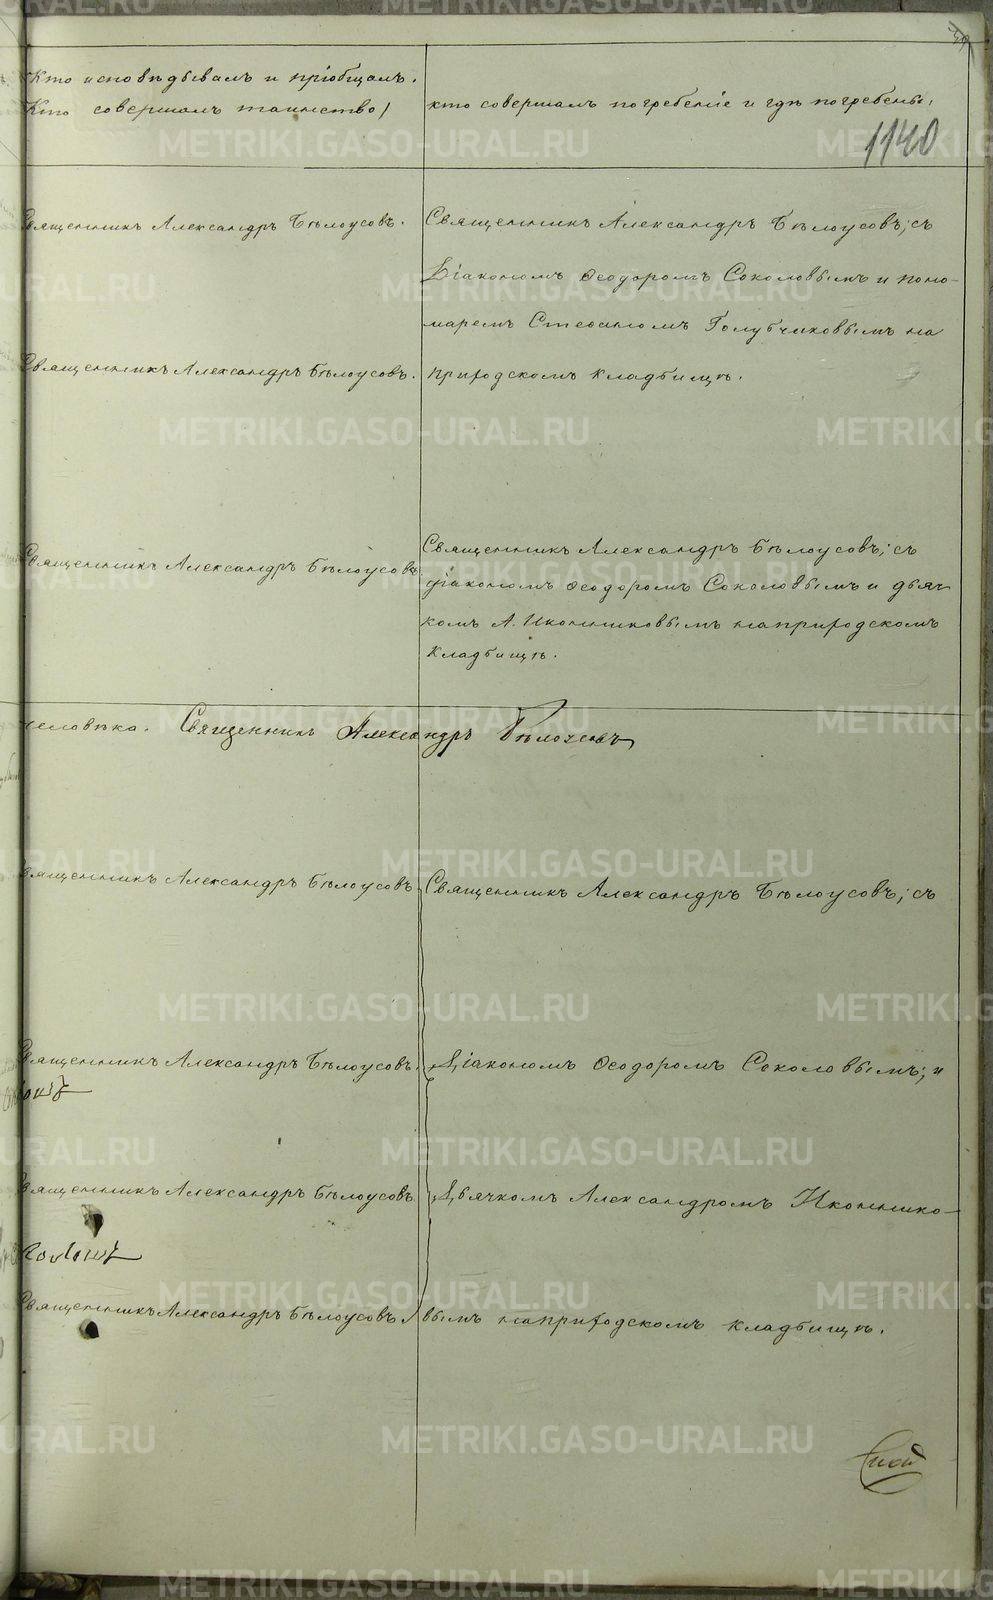 Кто исповѣдывалъ и пріобщалъ.
Кто совершалъ таинство/
кто совершалъ погребеніе и гдѣ погребены.
1140
Священникъ Александръ Бѣлоусовъ.
Священникъ Александръ Бѣлоусовъ; съ
Діакономъ Ѳеодоромъ Соколовымъ и поно-
маремъ Стефаномъ Голубчиковымъ на
Священникъ Александръ Бѣлоусовъ.
приходскомъ кладбищѣ.
Священникъ Александръ Бѣлоусовъ
Священникъ Александръ Бѣлоусовъ; съ
діакономъ Ѳеодоромъ Соколовымъ и дьяч-
комъ А. Иконниковымъ на приходскомъ
кладбищѣ.
человѣка. Священникъ Александръ Бѣлоусовъ
Священникъ Александръ Бѣлоусовъ
Священникъ Александръ Бѣлоусовъ; съ
Священникъ Александръ Бѣлоусовъ.
Діакономъ Ѳеодоромъ Соколовымъ; и
Священникъ Александръ Бѣлоусовъ
Дьячкомъ Александромъ Иконнико-
Священникъ Александръ Бѣлоусовъ
вымъ на приходскомъ кладбищѣ.
METRIKI.GASO-URAL.RU